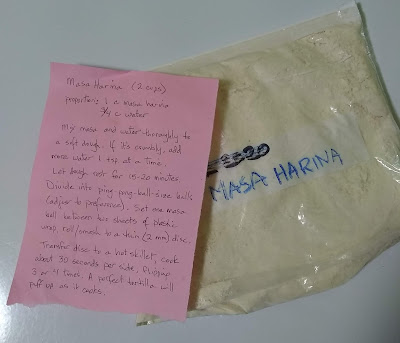 Masa Harina (2 cups)
proportions 1 c masa harina
3/4 c water
Mix masa and water thoroughly to
a soft dough. If it's crumbly, add
more water 1 tsp at a time.
Let dough rest for 15-20 minutes
Divide into ping-pong-ball-size balls
(adjust to preference). Set one masa
ball between two sheets of plastic
wrap, roll/smash to a thin (2 mm) disc.
Transfer disc to a hot skillet; cook
about 30 seconds per side, flipping
3 or 4 times. A perfect tortilla will
puff up as it cooks.
MASA HARINA